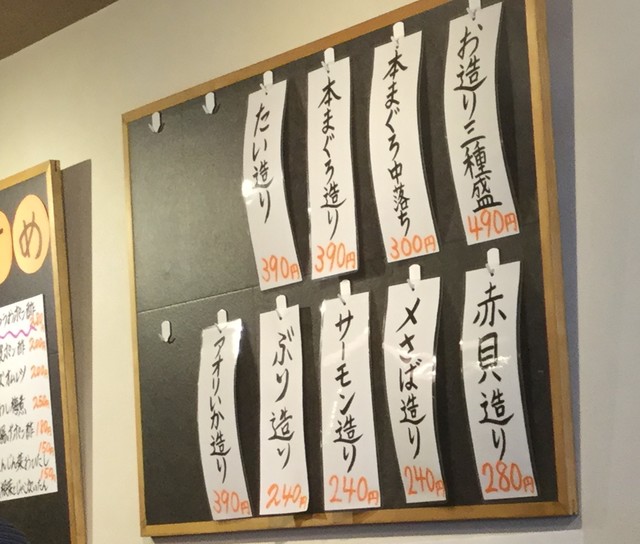 お造り三種盛
490円
本まぐろ中落ち
300円
本まぐろ造り
390円
たい造り
390円
赤貝造り
280円
〆さば造り
240円
サーモン造り
240円
ぶり造り
240円
アオリいか造り
390円
め